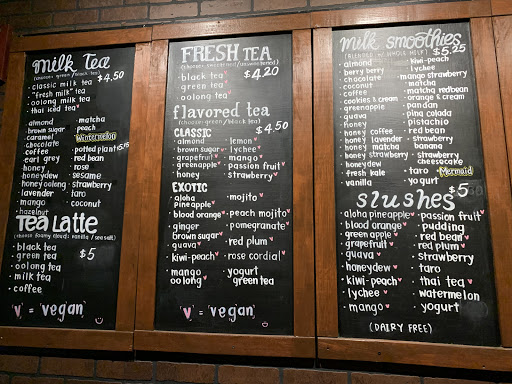 milk Tea
(choose: green/black tea)
$4.50
· classic milk tea
· "fresh milk" tea
· oolong milk tea
· thai iced tea
· almond
· brown sugar
· caramel
· chocolate
· coffee
· earl grey
· honey
· honeydew
· honey oolong
· lavender
· mango
· hazelnut
· matcha
· peach
Wintermelon
· potted plant +$.75
· red bean
· rose
· sesame
· strawberry
· taro
· coconut
Tea Latte
(choose foamy cloud: vanilla/seasalt)
· black tea
· green tea
· oolong tea
· milk tea
· coffee
$5
"V" = vegan
FRESH TEA
(choose: sweetened/unsweetened)
$4.20
· black tea
· green tea
· oolong tea
flavored tea
(choose: green/black tea)
CLASSIC
$4.50
· almond
· brown sugar
· grapefruit
· greenapple
· honey
· lemon
· lychee
· mango
· passion fruit
· strawberry
EXOTIC
· aloha pineapple
· blood orange
· ginger
· brown sugar guava
· kiwi-peach
· mango oolong
· mojito
· peach mojito
· pomegranate
· red plum
· rose cordial
· yogurt green tea
"V" = vegan
milk smoothies
(blended w/ whole milk)
$5.25
· almond
· berry berry
· chocolate
· coconut
· coffee
· cookies & cream
· greenapple
· guava
· honey
· honey coffee
· honey lavender
· honey matcha
· honey strawberry
· honeydew
· fresh kale
· vanilla
· kiwi-peach
· lychee
· mango strawberry
· matcha
· matcha redbean
· orange & cream
· pandan
· pina colada
· pistachio
· red bean
· strawberry
· strawberry banana
· strawberry cheesecake
· taro
Mermaid
· yogurt
slushes
$5
· aloha pineapple
· blood orange
· green apple
· grapefruit
· guava
· honeydew
· kiwi-peach
· lychee
· mango
· passion fruit
· pudding
· red bean
· red plum
· strawberry
· taro
· thai tea
· watermelon
· yogurt
(DAIRY FREE)